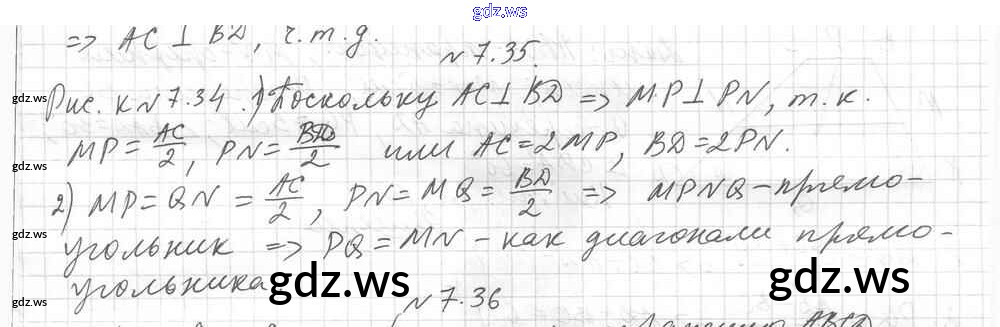 gdz.ws
=> AC ⊥ BD, ч.т.д.
№ 7.35.
gdz.ws
Рис. к № 7.34. 1) Поскольку AC ⊥ BD => MP ⊥ PN, т.к.
MP = AC/2, PN = BD/2 или AC = 2MP, BD = 2PN.
gdz.ws
2) MP = QN = AC/2, PN = MQ = BD/2 => MPNQ - прямо-
gdz.ws
угольник => PQ = MN - как диагонали прямо-
угольника
gdz.ws gdz.ws
gdz.ws
№ 7.36
ABCD